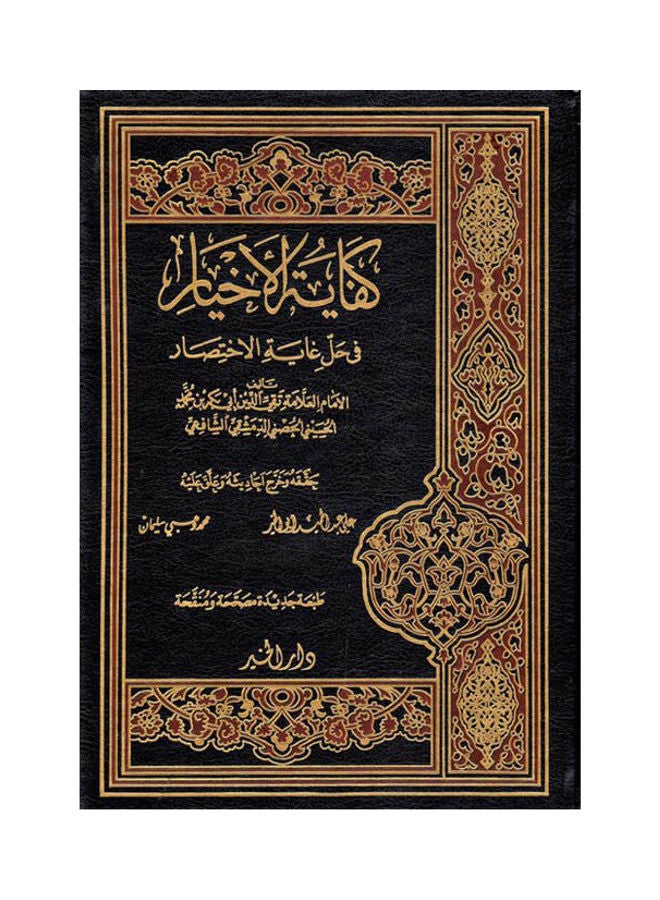 كفاية الأخيار
في حل غاية الاختصار
تأليف
الإمام العلامة تقي الدين أبي بكر بن محمد
الحسيني الحصني الدمشقي الشافعي
حققه وخرج أحاديثه وعلق عليه
علي عبد الحميد أبو الخير محمد وهبي سليمان
طبعة جديدة مصححة ومنقحة
دار الخير